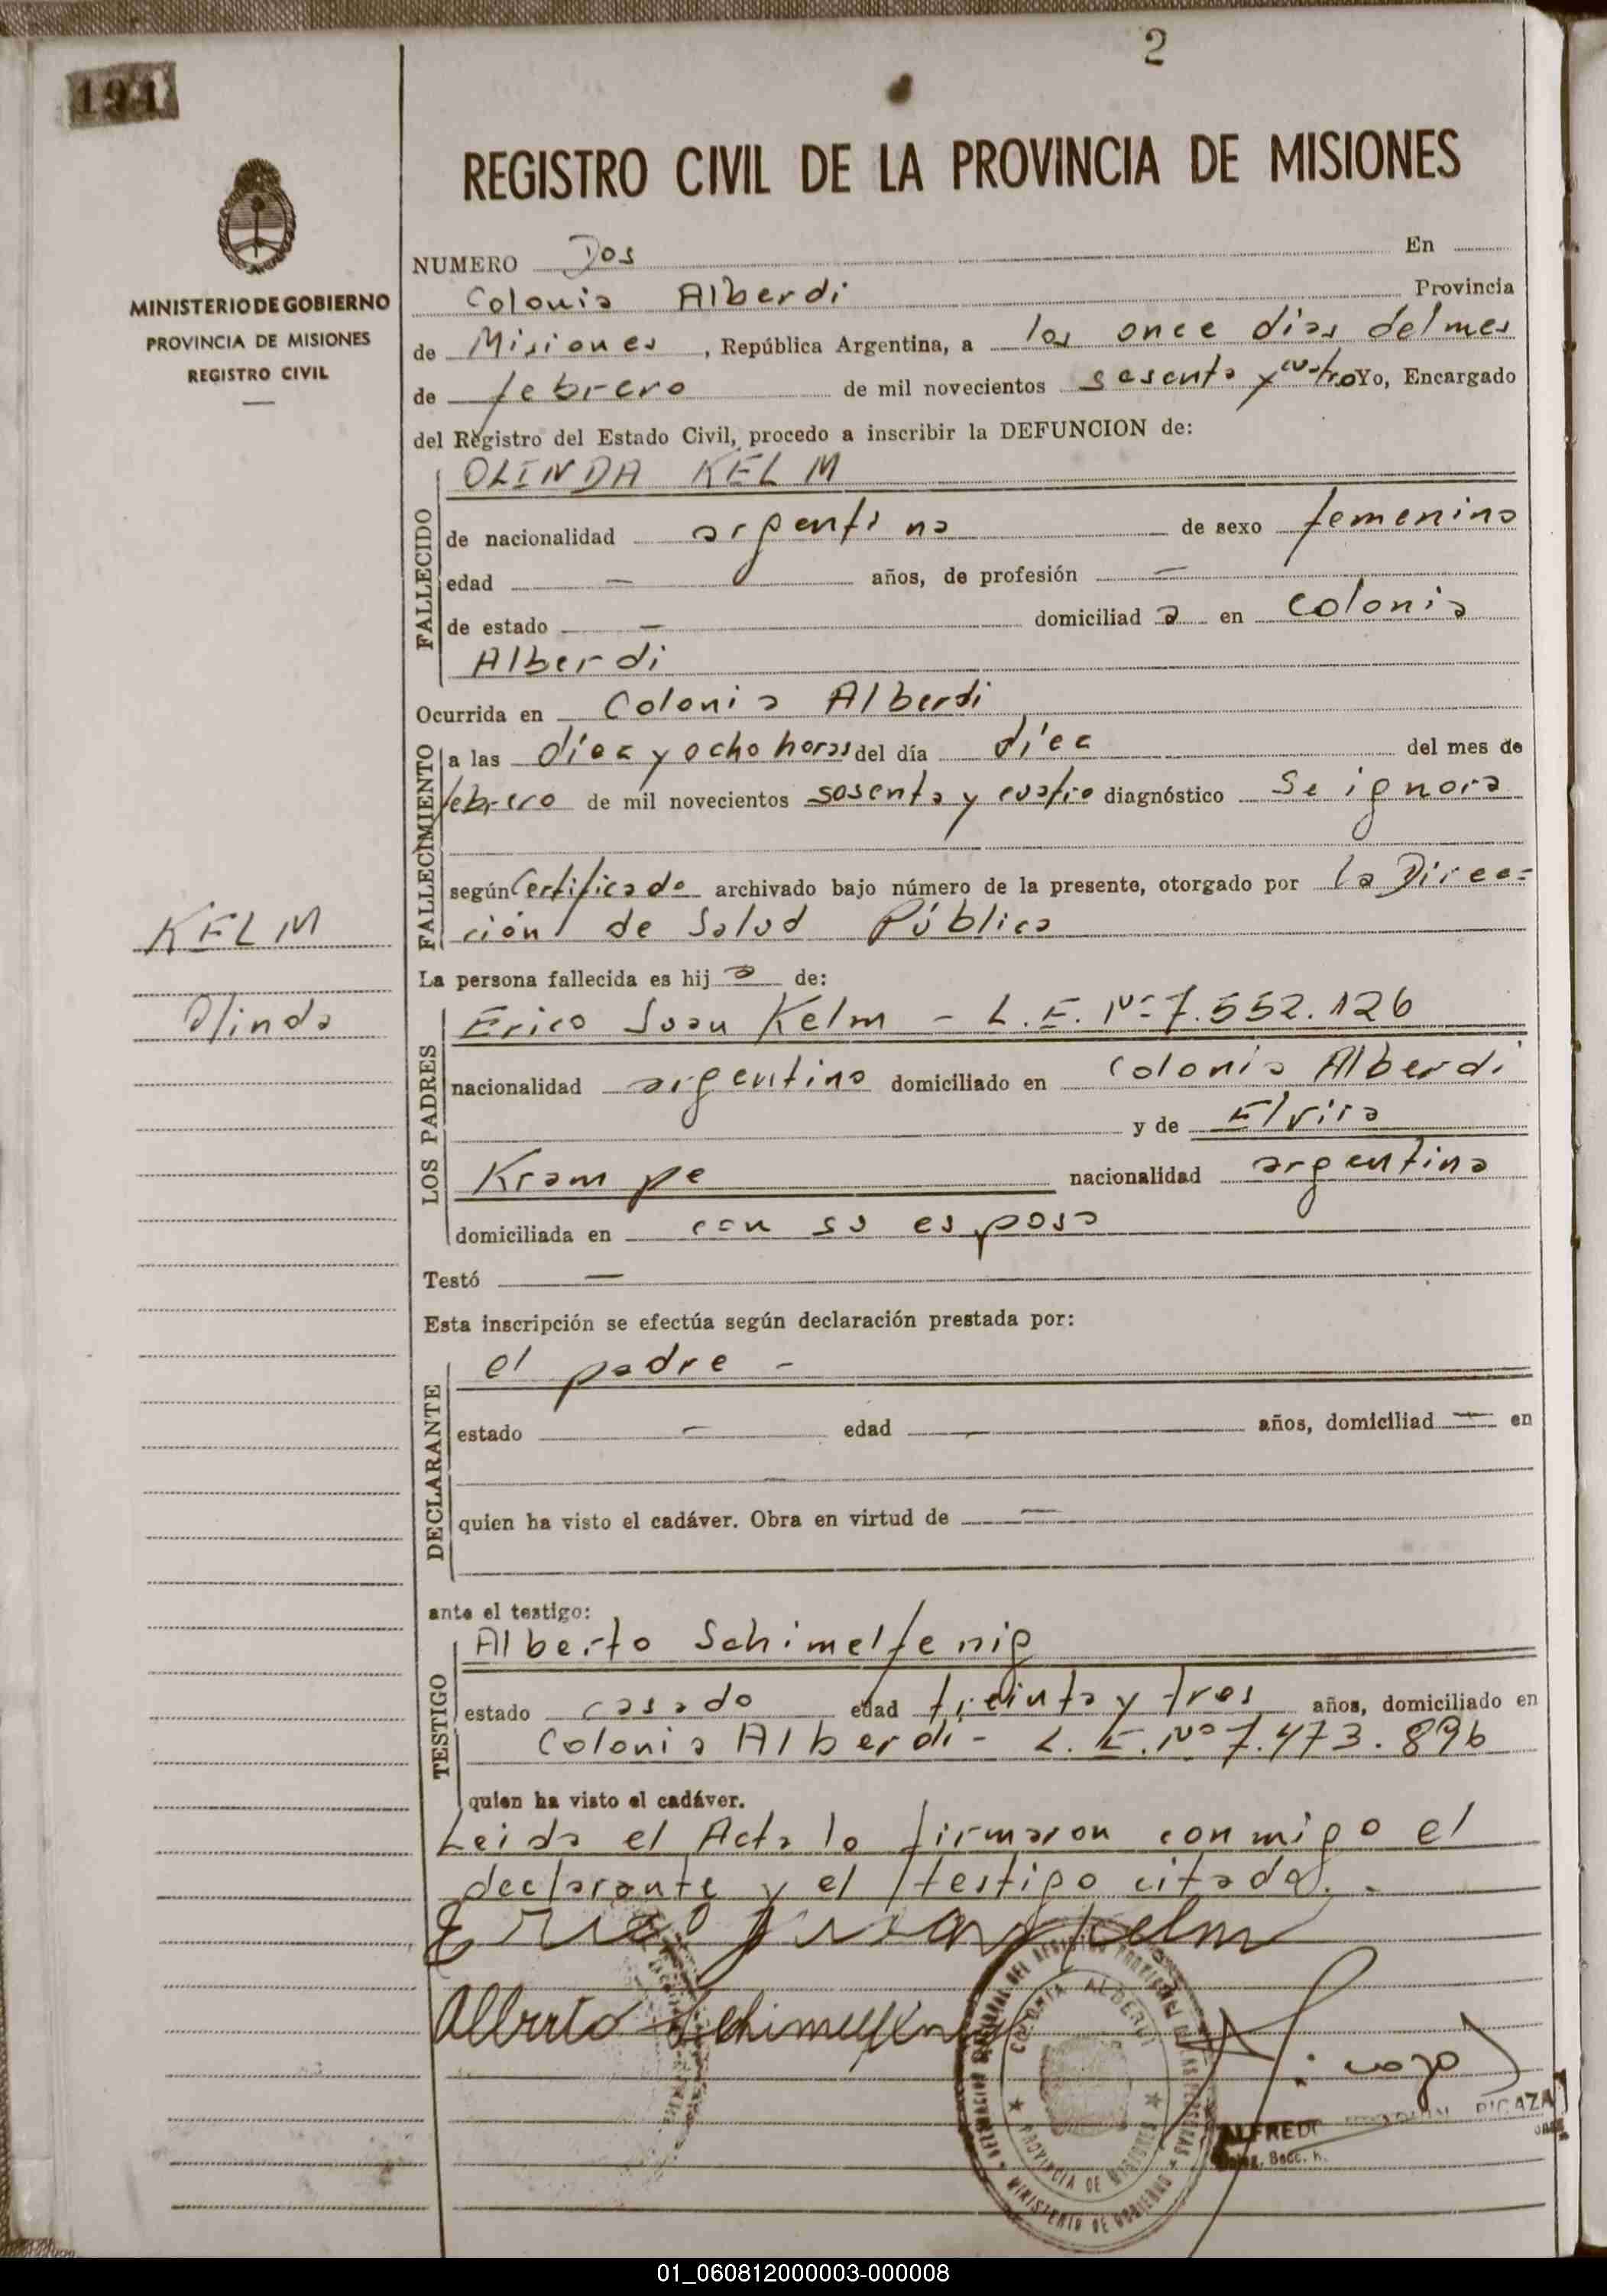 2
191
REGISTRO CIVIL DE LA PROVINCIA DE MISIONES
MINISTERIO DE GOBIERNO
PROVINCIA DE MISIONES
REGISTRO CIVIL
NUMERO Dos En
Colonia Alberdi Provincia
de Misiones, República Argentina, a los once dias del mes
de febrero de mil novecientos sesenta y cuatro Yo, Encargado
del Registro del Estado Civil, procedo a inscribir la DEFUNCION de:
FALLECIDO
OLINDA KELM
de nacionalidad argentina de sexo femenino
edad — años, de profesión —
de estado — domiciliad a en Colonia
Alberdi
Ocurrida en Colonia Alberdi
FALLECIMIENTO
a las diez y ocho horas del día diez del mes de
febrero de mil novecientos sesenta y cuatro diagnóstico Se ignora
según Certificado archivado bajo número de la presente, otorgado por la Direc=
ción de Salud Pública
KELM
Olinda
La persona fallecida es hij a de:
LOS PADRES
Erico Juan Kelm - L.E. Nº 7.552.126
nacionalidad argentino domiciliado en Colonia Alberdi
y de Elvira
Krampe nacionalidad argentina
domiciliada en con su esposo
Testó —
Esta inscripción se efectúa según declaración prestada por:
DECLARANTE
el padre -
estado — edad — años, domiciliad — en
—
quien ha visto el cadáver. Obra en virtud de —
ante el testigo:
TESTIGO
Alberto Schimelfenig
estado casado edad treinta y tres años, domiciliado en
Colonia Alberdi - L.E. Nº 7.473.896
quien ha visto el cadáver.
Leida el Acta lo firmaron conmigo el
declarante y el testigo citado.-
Erico Juan Kelm
Alberto Schimelfenig
COLONIA ALBERDI
PROVINCIA DE MISIONES
MINISTERIO DE GOBIERNO
ALFREDO PICAZA
01_060812000003-000008